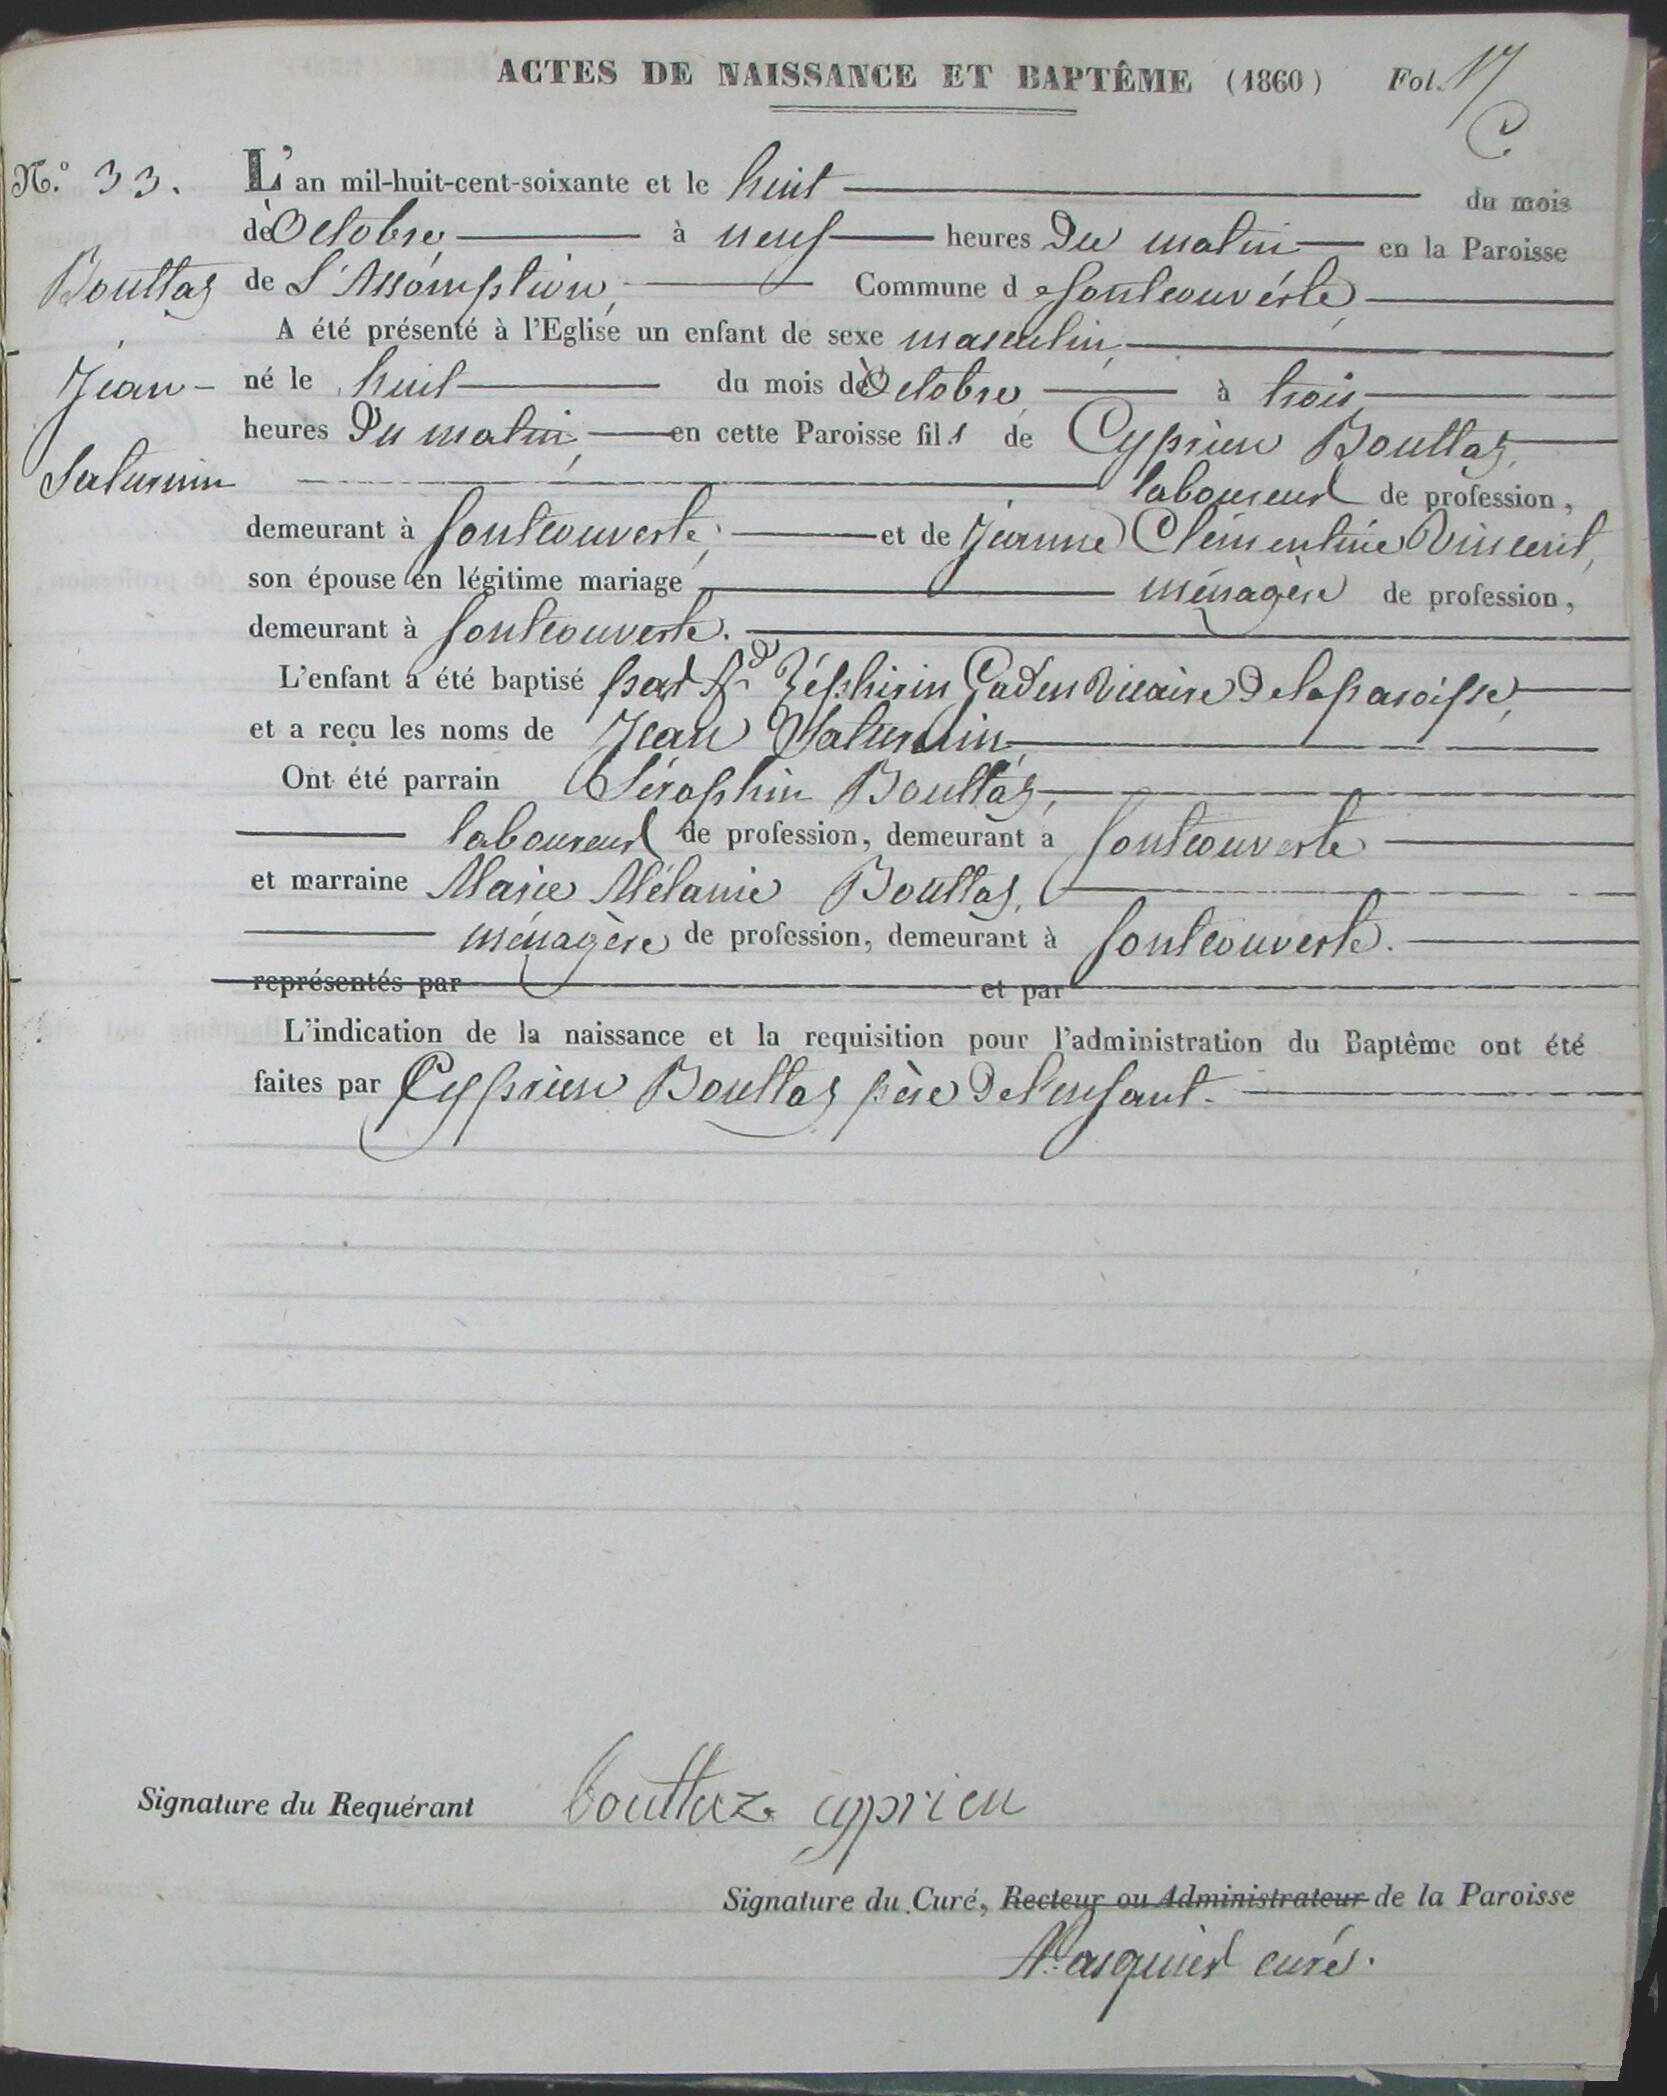 ACTES DE NAISSANCE ET BAPTÊME (1860) Fol. 17
C.
N.° 33. L'an mil-huit-cent-soixante et le huit du mois
de Octobre à neuf heures du matin en la Paroisse
Bouttaz de L'Assomption, Commune de fontcouverte,
A été présenté à l'Eglise un enfant de sexe masculin,
Jean- né le huit du mois de Octobre à trois
heures du matin, en cette Paroisse fils de Cyprien Bouttaz,
Saturnin laboureur de profession,
demeurant à fontcouverte; et de Jeanne Clémentine Vincent,
son épouse en légitime mariage ménagère de profession,
demeurant à fontcouverte.
L'enfant a été baptisé par Rd Zéphirin Gaden vicaire de la paroisse,
et a reçu les noms de Jean Saturnin,
Ont été parrain Séraphin Bouttaz,
laboureur de profession, demeurant à fontcouverte
et marraine Marie Mélanie Bouttaz,
ménagère de profession, demeurant à fontcouverte.
représentés par et par
L'indication de la naissance et la requisition pour l'administration du Baptême ont été
faites par Cyprien Bouttaz père de l'enfant.
Signature du Requérant bouttaz cyprien
Signature du Curé, Recteur ou Administrateur de la Paroisse
Pasquier curé.